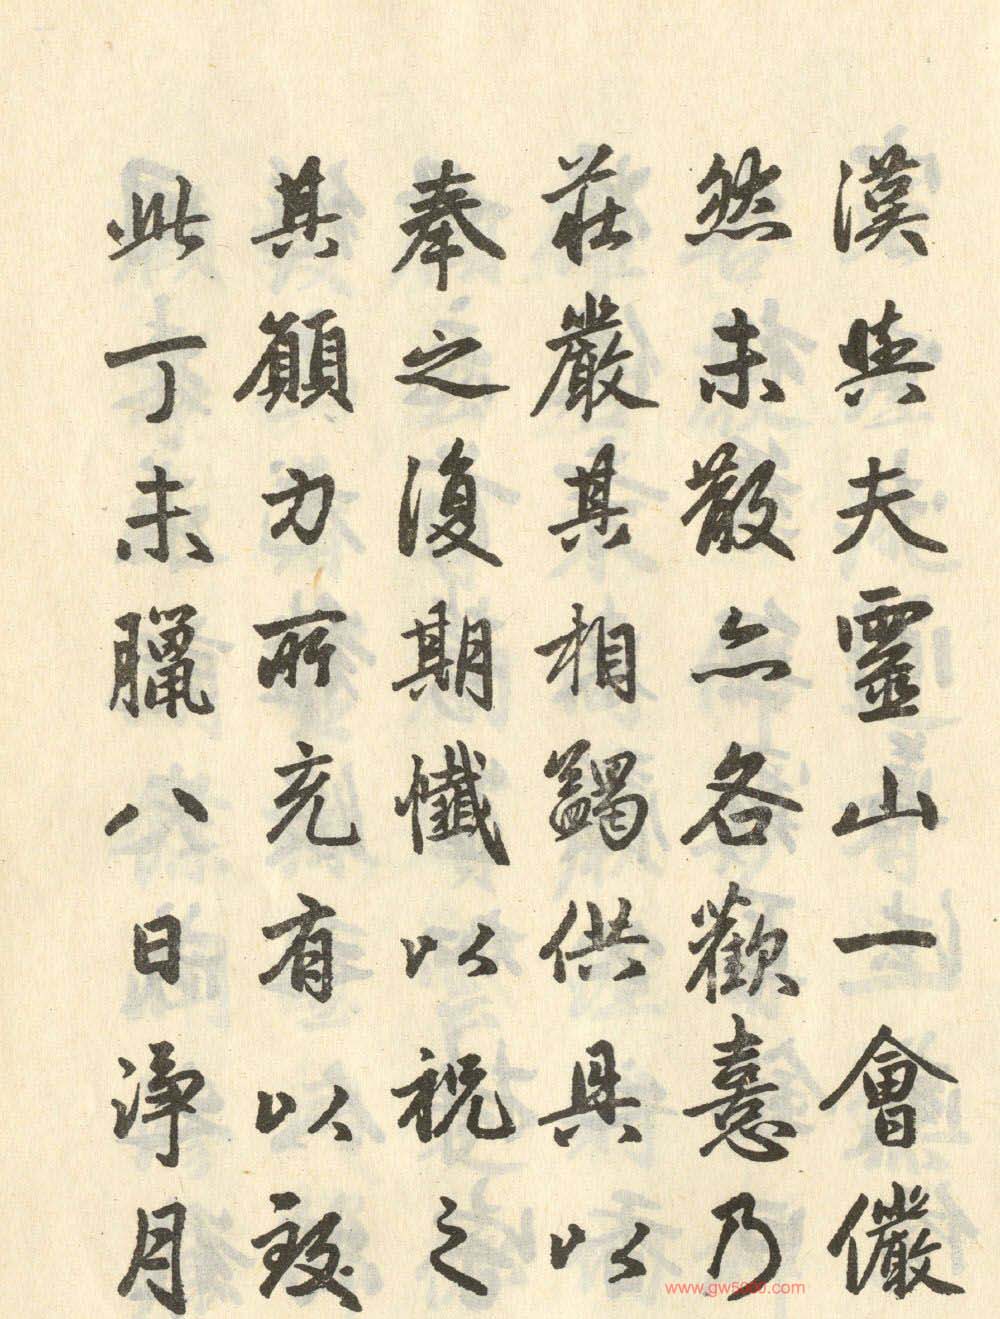 漢與夫靈山一會儼
然未散亦各歡憙乃
莊嚴其相蠲供具以
奉之復期懺以祝之
其願力所充有以致
此丁未臘八日淨月
www.gw5000.com